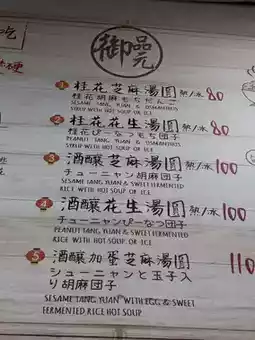 吃
御品元
硬
1 桂花芝麻湯圓 熱/冰 80
桂花胡麻もちだんご
SESAME TANG YUAN & OSMANTHUS
SYRUP WITH HOT SOUP OR ICE
2 桂花花生湯圓 熱/冰 80
桂花ぴーなつもち団子
PEANUT TANG YUAN & OSMANTHUS
SYRUP WITH HOT SOUP OR ICE
3 酒釀芝麻湯圓 熱/冰 100
チューニャン胡麻団子
SESAME TANG YUAN & SWEET FERMENTED
RICE WITH HOT SOUP OR ICE
4 酒釀花生湯圓 熱/冰 100
チューニャンぴーなつ団子
PEANUT TANG YUAN & SWEET FERMENTED
RICE WITH HOT SOUP OR ICE
5 酒釀加蛋芝麻湯圓 110
シューニャンと玉子入
り胡麻団子
SESAME TANG YUAN WITH EGG & SWEET
FERMENTED RICE HOT SOUP